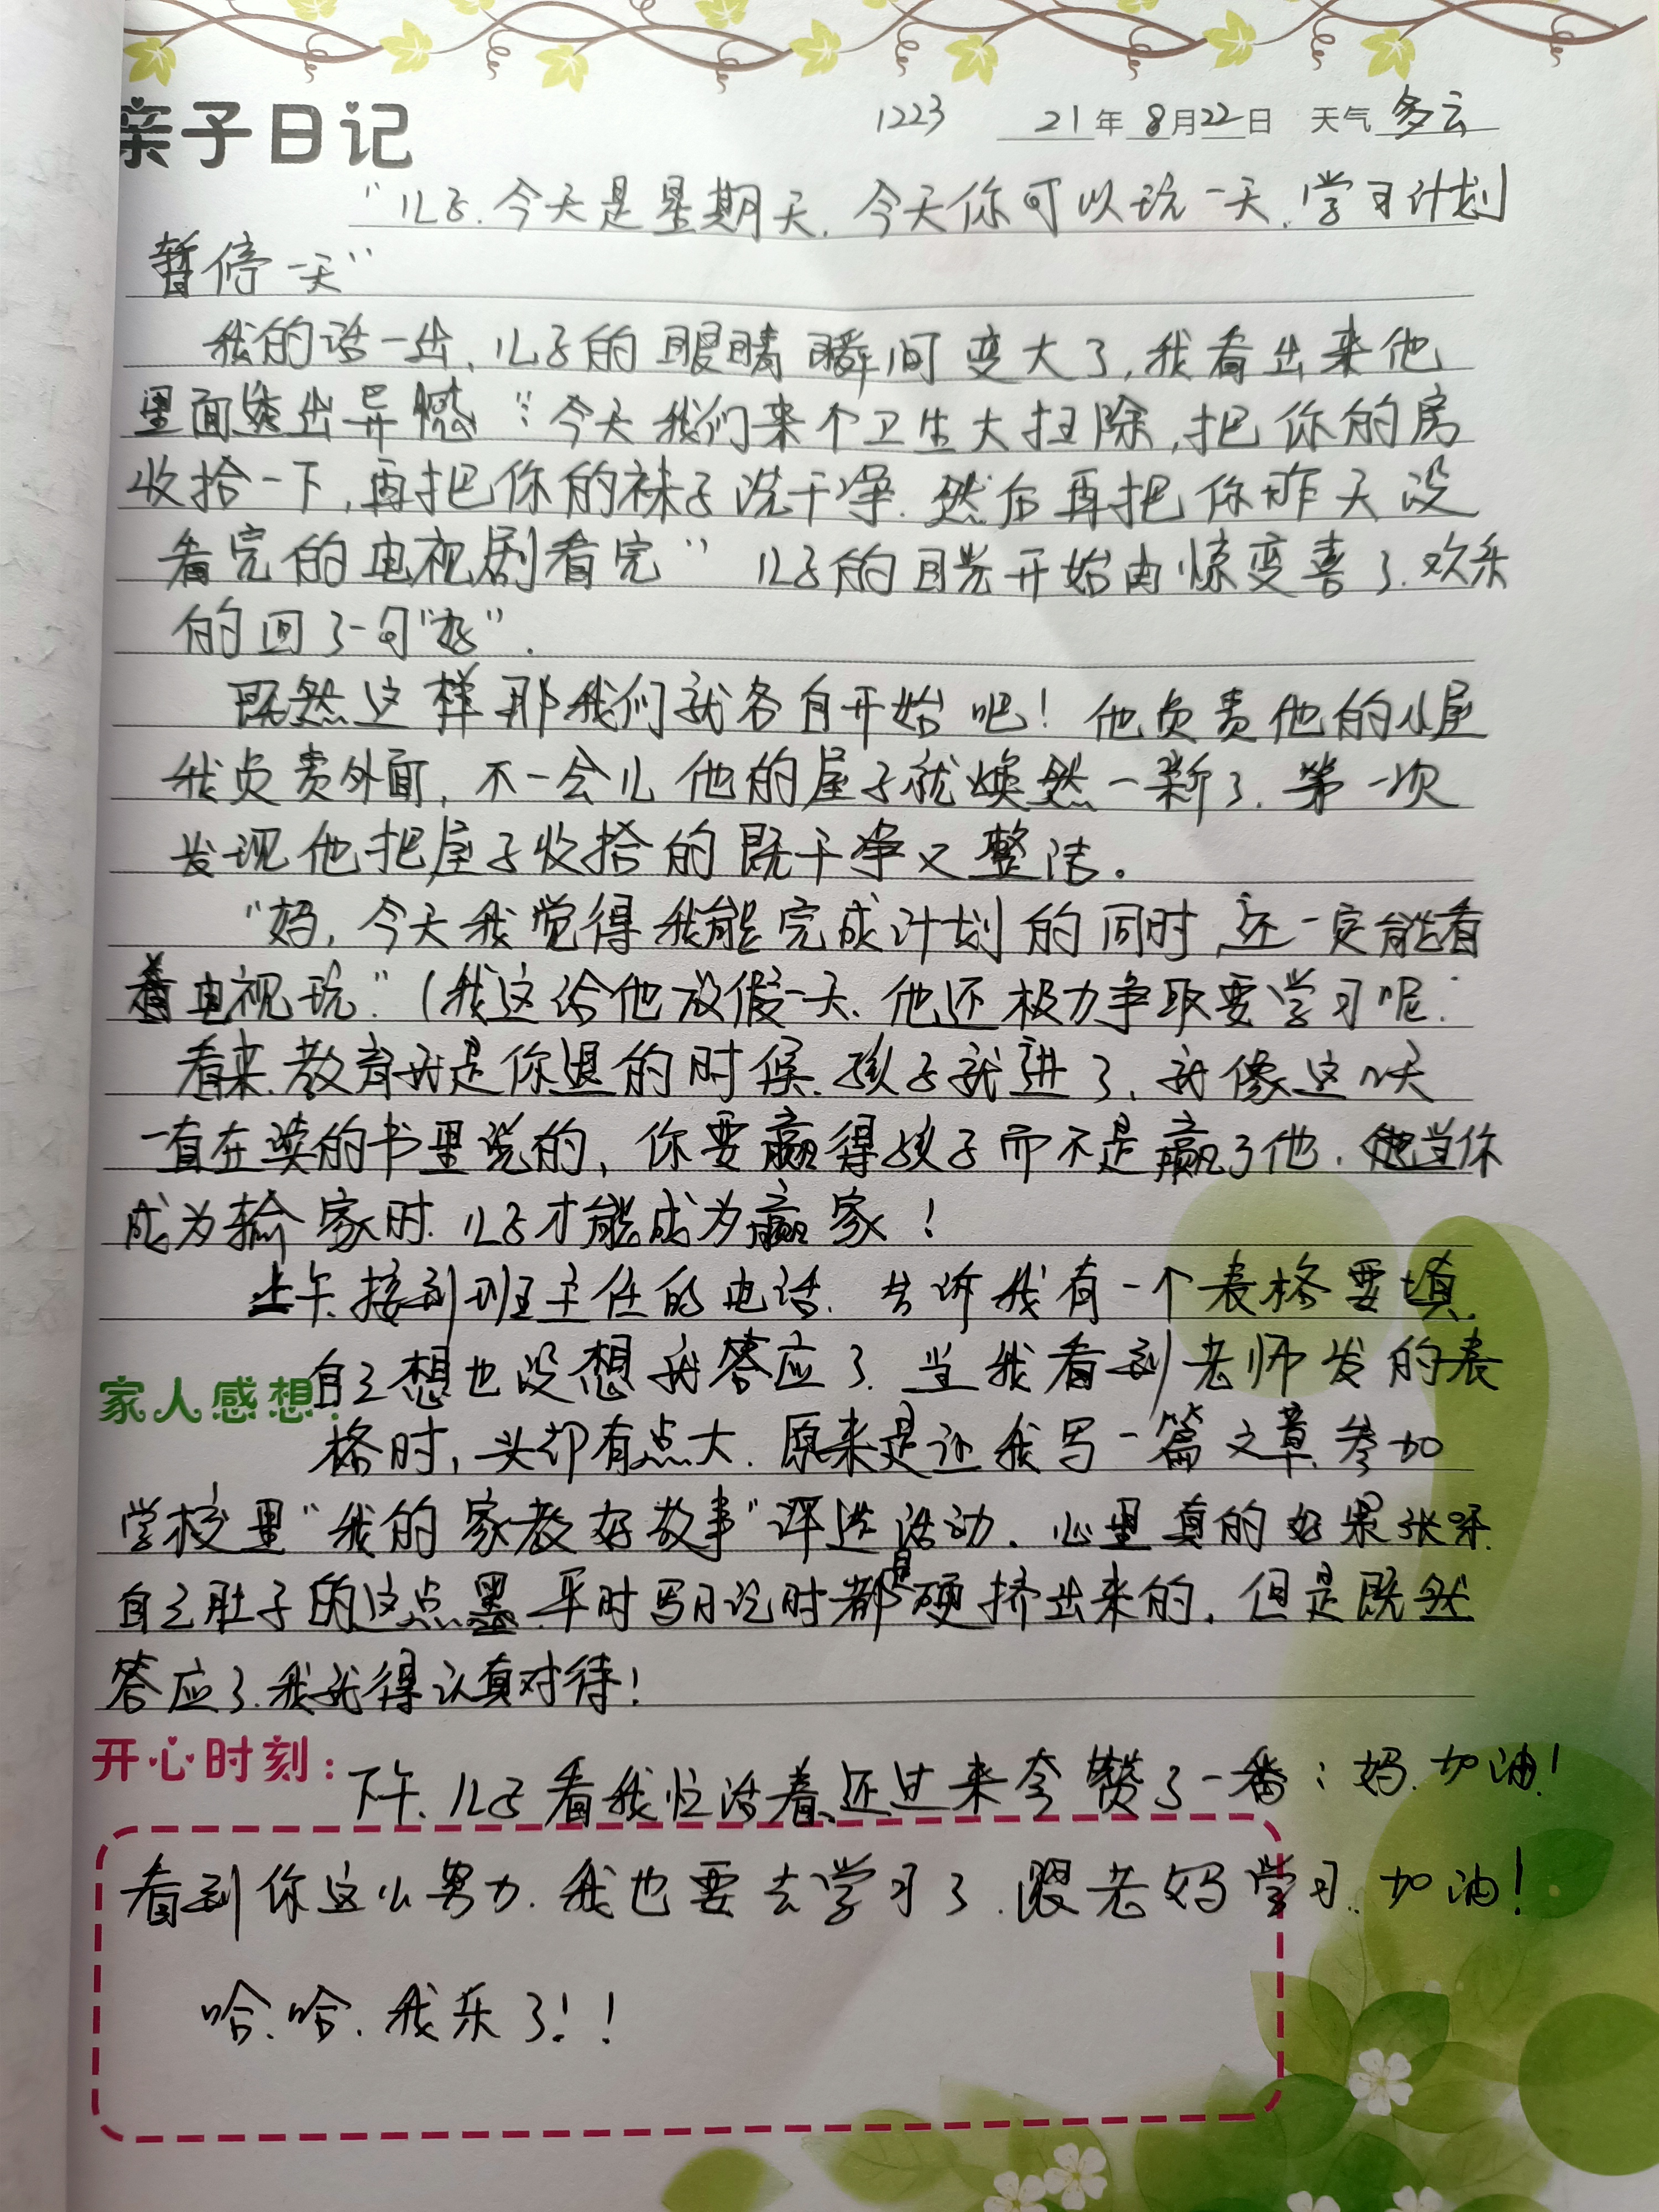 亲子日记 1223 21年8月22日 天气 多云
"儿子.今天是星期天.今天你可以玩一天.学习计划
暂停一天"
我的话一出,儿子的眼睛瞬间变大了,我看出来他
里面透出异 "今天我们来个卫生大扫除,把你的房
收拾一下,再把你的袜子洗干净.然后再把你昨天没
看完的电视剧看完" 儿子的目光开始由惊变喜了.欢乐
的回了一句"好".
既然这样那我们就各自开始吧!他负责他的小屋
我负责外面,不一会儿他的屋子就焕然一新了.第一次
发现他把屋子收拾的既干净又整洁。
"妈,今天我觉得我能完成计划的同时,还一定能看
着电视玩."(我这给他放假一天.他还极力争取要学习呢.
看来.教育就是你退的时候.孩子就进了.就像这几天
一直在读的书里说的,你要赢得孩子而不是赢了他.当你
成为输家时.儿子才能成为赢家!
上午.接到班主任的电话.告诉我有一个表格要填.
家人感想:自己想也没想就答应了.当我看到老师发的表
格时,头却有点大.原来是让我写一篇文章.参加
学校里"我的家教好故事"评选活动.心里真的好果张呀.
自己肚子的这点墨.平时写日记时都是硬挤出来的.但是既然
答应了.我就得认真对待!
开心时刻:下午.儿子看我忙活着.还过来夸赞了一番:妈.加油!
看到你这么努力.我也要去学习了.跟老妈学习.加油!
哈.哈.我乐了!!